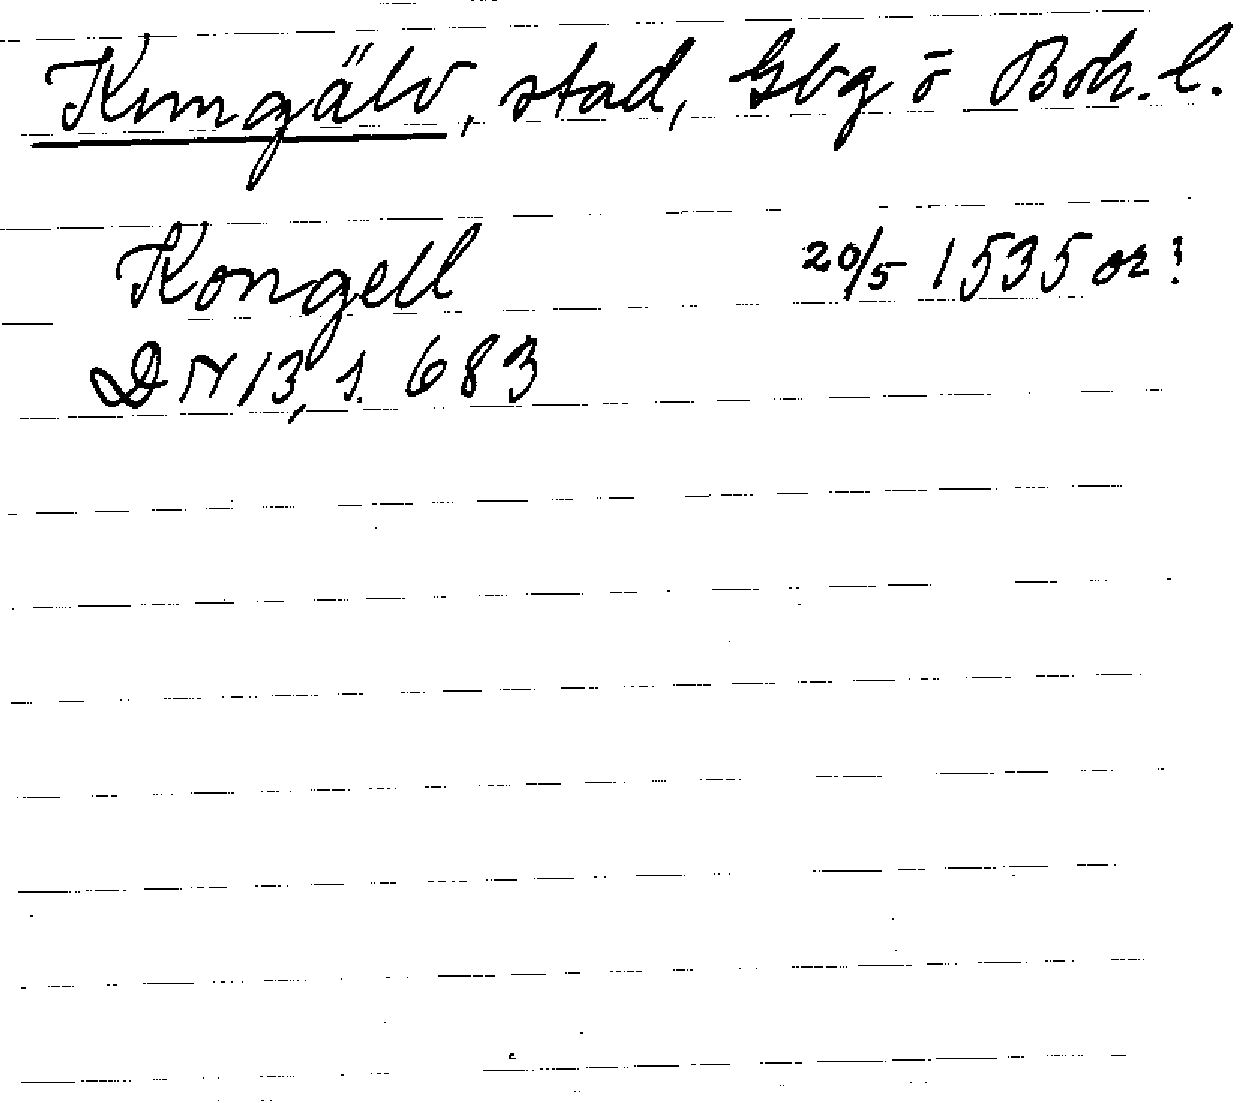 Kungälv, stad, Gbg o Boh. l.
Kongell 20/5 1535 or!
DN 13, 1. 683